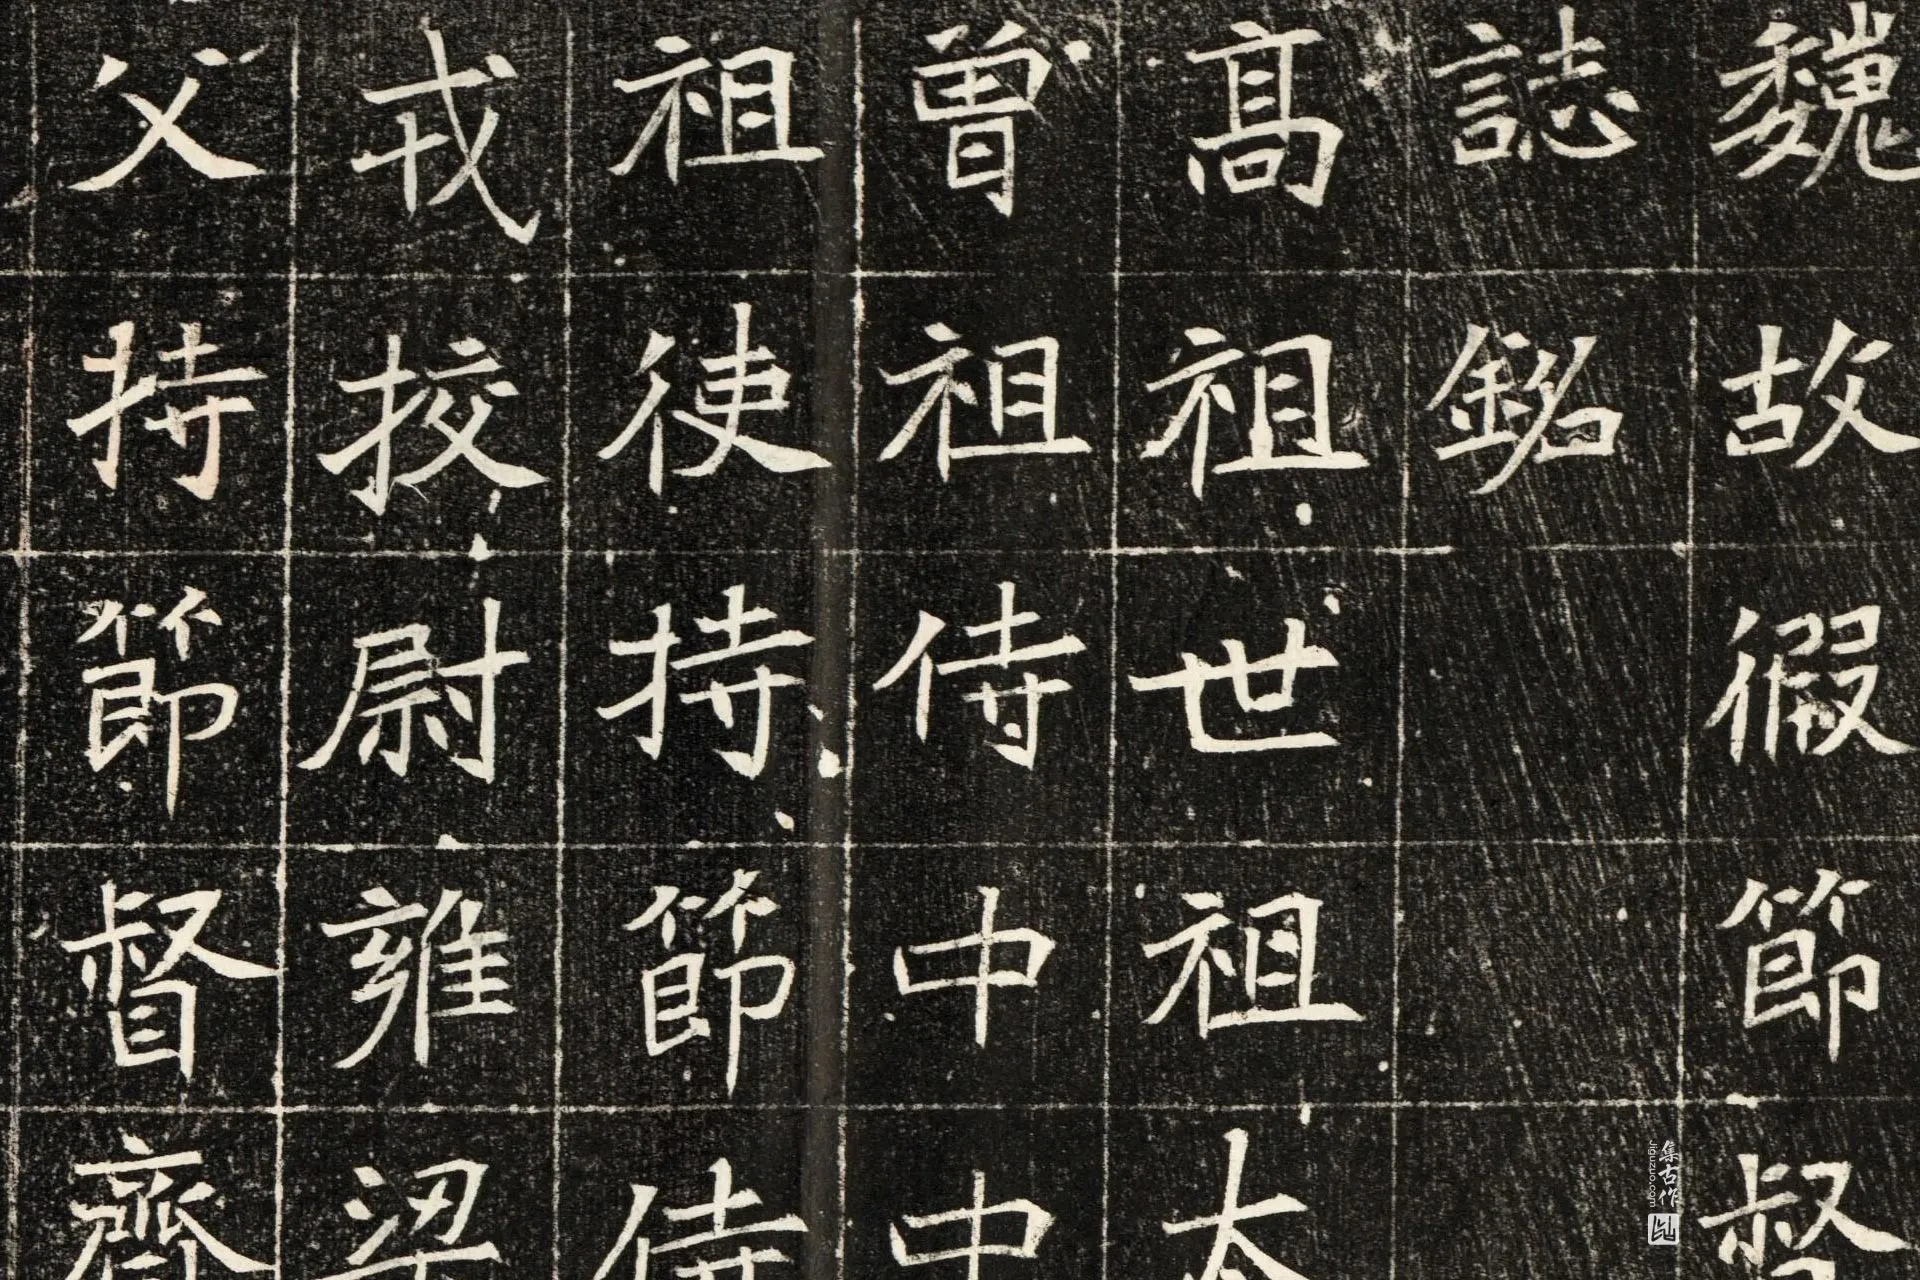 魏故假節督
誌銘
高祖世祖太
曾祖侍中中
祖使持節侍
戎挍尉雍梁
父持節督齊
集古作
jiguzuo.com